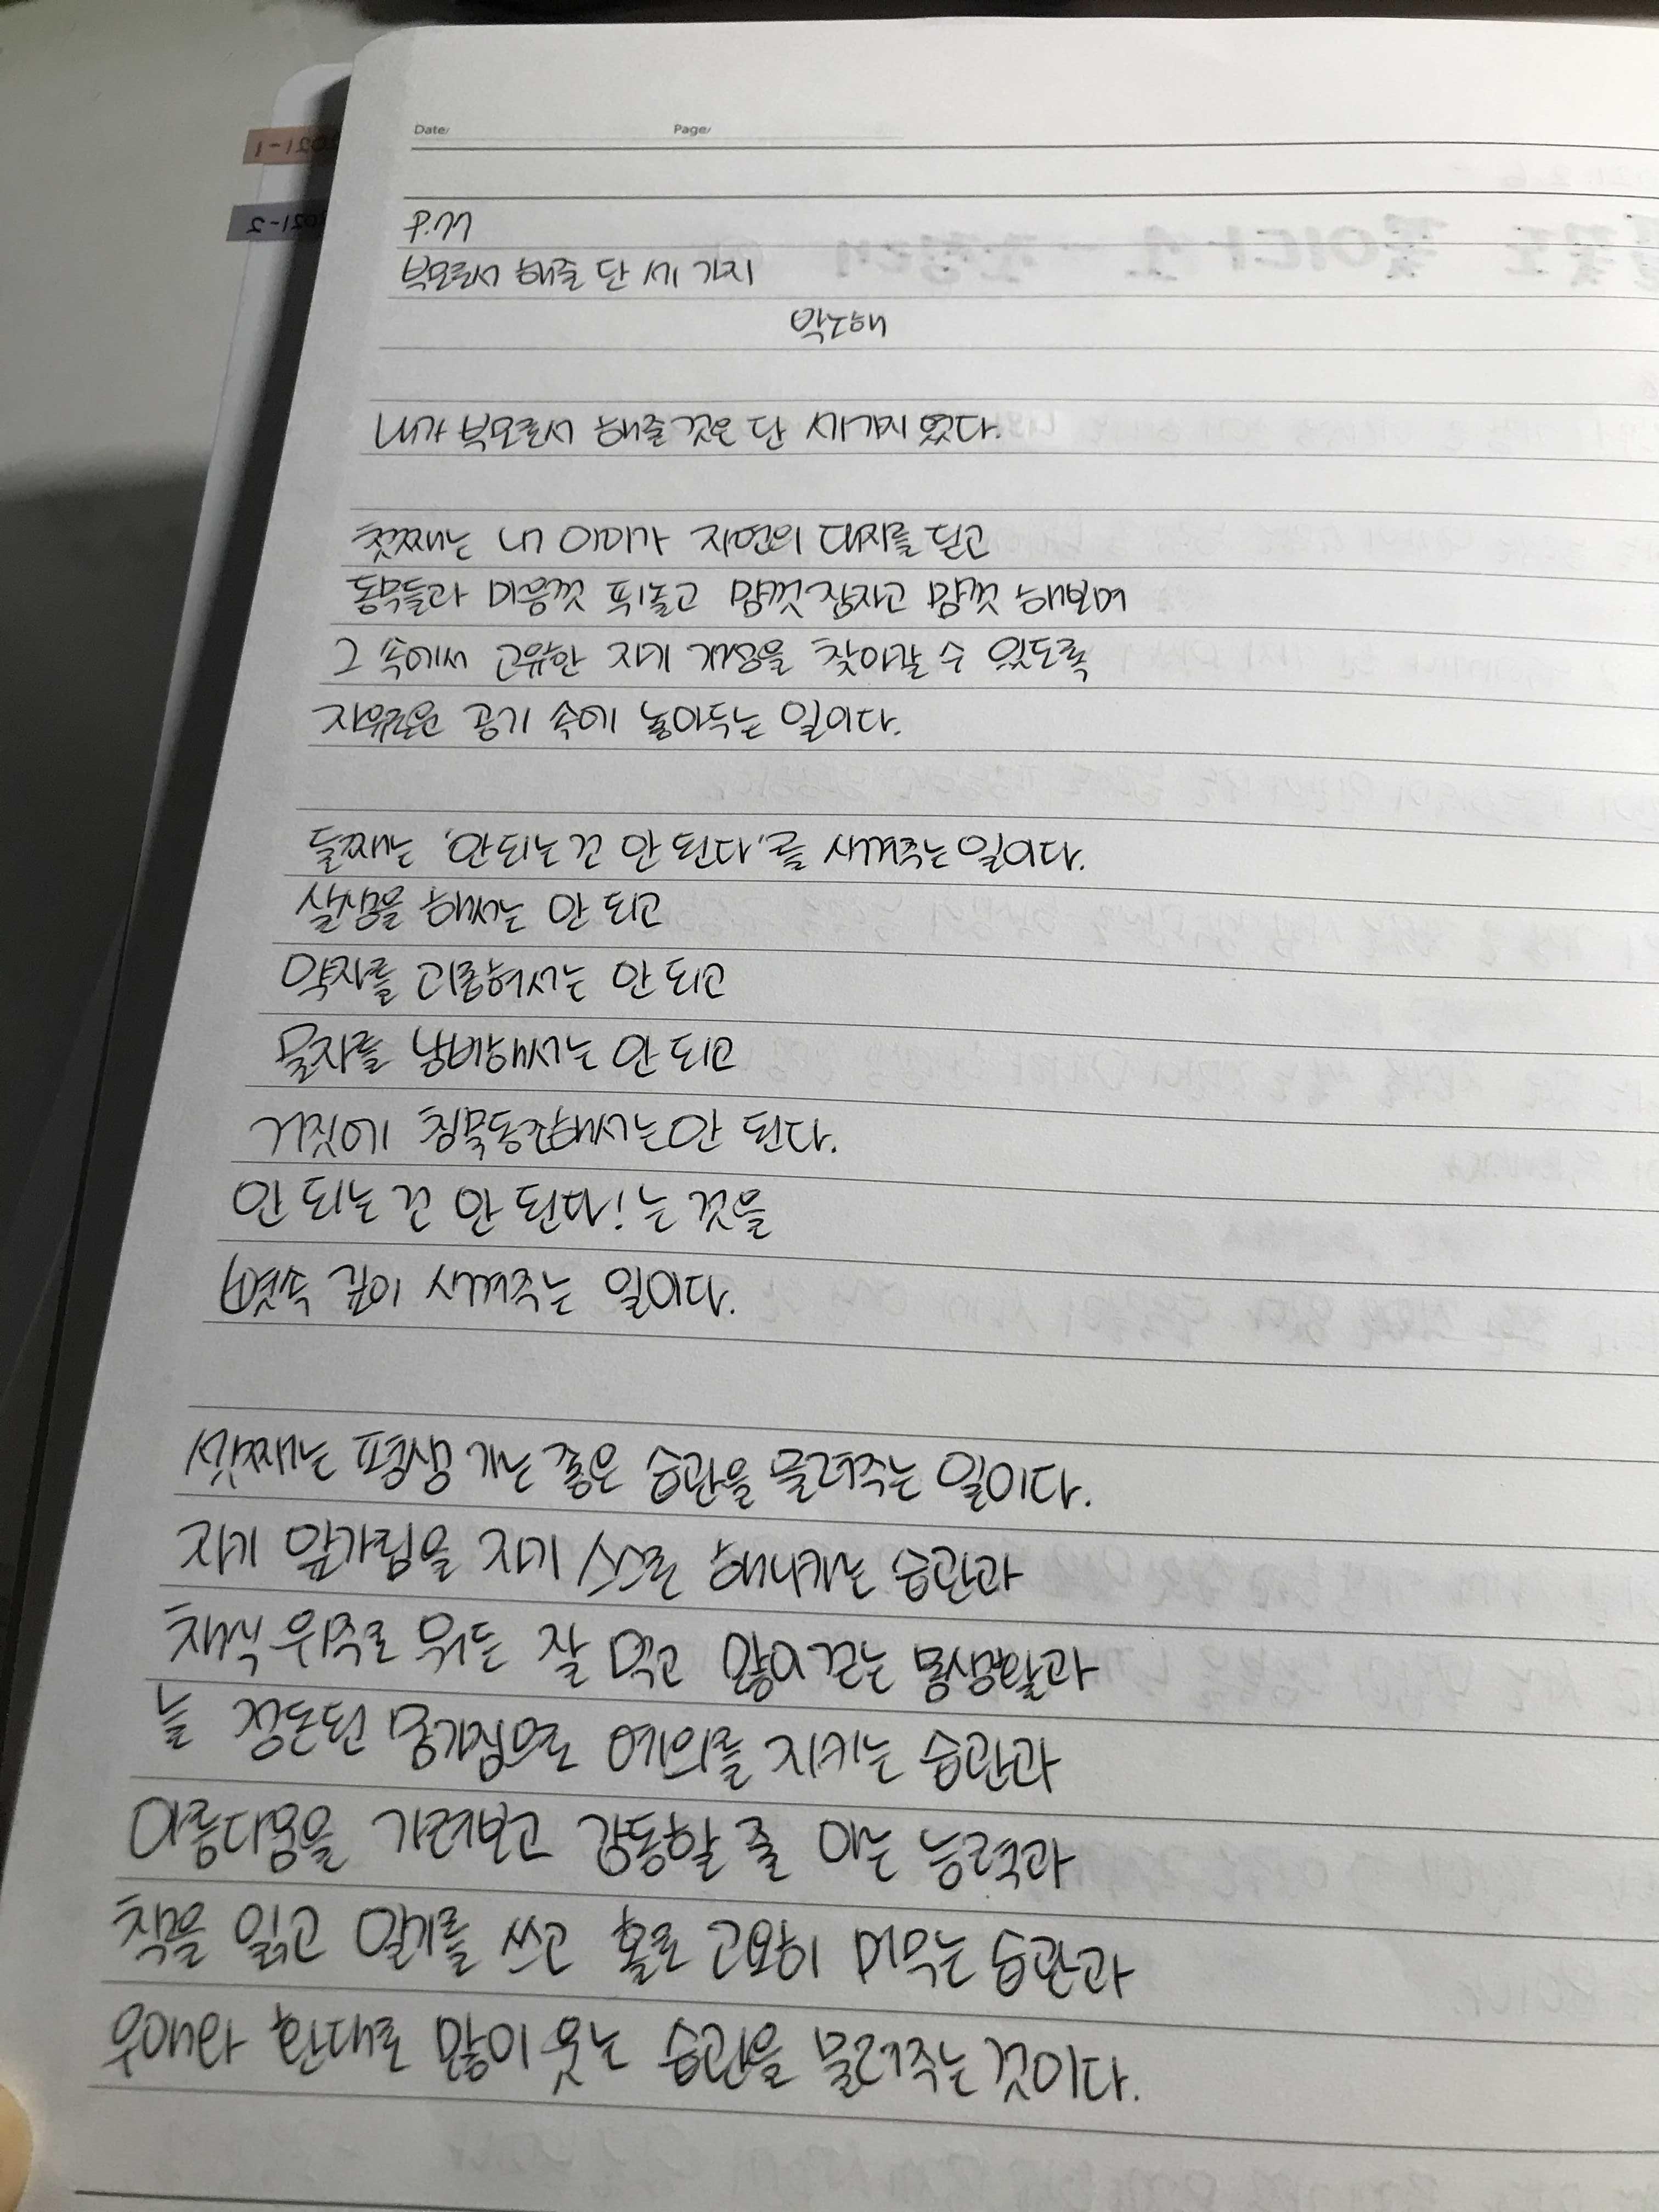 Date/ Page/
2021-1
2021-2
P.77
부모로서 해줄 단 세 가지
박노해
내가 부모로서 해줄 것은 단 세가지였다.
첫째는 내 아이가 자연의 대지를 딛고
동무들과 마음껏 뛰놀고 맘껏 잠자고 맘껏 해보며
그 속에서 고유한 자기 개성을 찾아갈 수 있도록
자유로운 공기 속에 놓아두는 일이다.
둘째는 '안되는 건 안 된다'를 새겨주는 일이다.
살생을 해서는 안 되고
약자를 괴롭혀서는 안 되고
물자를 낭비해서는 안 되고
거짓에 침묵동조해서는 안 된다.
안 되는 건 안 된다! 는 것을
뼛속 깊이 새겨주는 일이다.
셋째는 평생 가는 좋은 습관을 물려주는 일이다.
자기 앞가림을 자기 스스로 해나가는 습관과
채식 위주로 뭐든 잘 먹고 많이 걷는 몸생활과
늘 정돈된 몸가짐으로 예의를 지키는 습관과
아름다움을 가려보고 감동할 줄 아는 능력과
책을 읽고 일기를 쓰고 홀로 고요히 머무는 습관과
우애와 환대로 많이 웃는 습관을 물려주는 것이다.